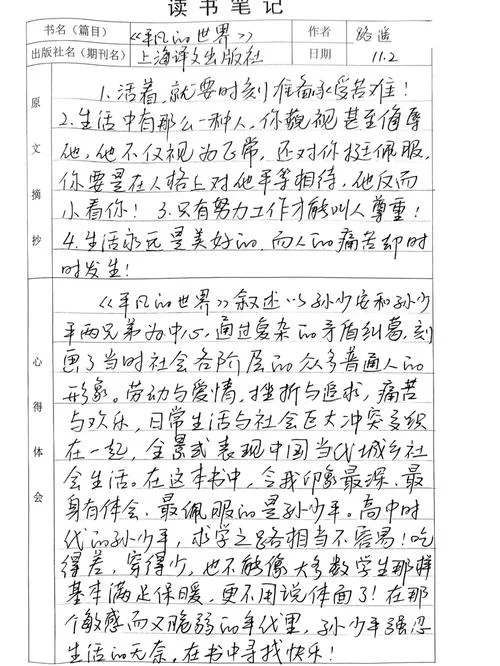 读书笔记
书名（篇目） 《平凡的世界》 作者 路遥
出版社名（期刊名） 上海译文出版社 日期 11.2
原文摘抄
1.活着，就要时刻准备承受苦难！
2.生活中有那么一种人，你藐视甚至侮辱
他，他不仅视为正常，还对你挺佩服，
你要是在人格上对他平等相待，他反而
小看你！ 3.只有努力工作才能叫人尊重！
4.生活永远是美好的，而人的痛苦却时
时发生！
心得体会
《平凡的世界》叙述以孙少安和孙少
平两兄弟为中心，通过复杂的矛盾纠葛，刻
画了当时社会各阶层的众多普通人的
形象。劳动与爱情，挫折与追求，痛苦
与欢乐，日常生活与社会巨大冲突交织
在一起，全景式表现中国当代城乡社
会生活。在这本书中，令我印象最深、最
身有体会、最佩服的是孙少平。高中时
代的孙少平，求学之路相当不容易！吃
得差，穿得少，也不能像大多数学生那样
基本满足保暖，更不用说体面了！在那
个敏感而又脆弱的年代里，孙少平强忍
生活的无奈，在书中寻找快乐！